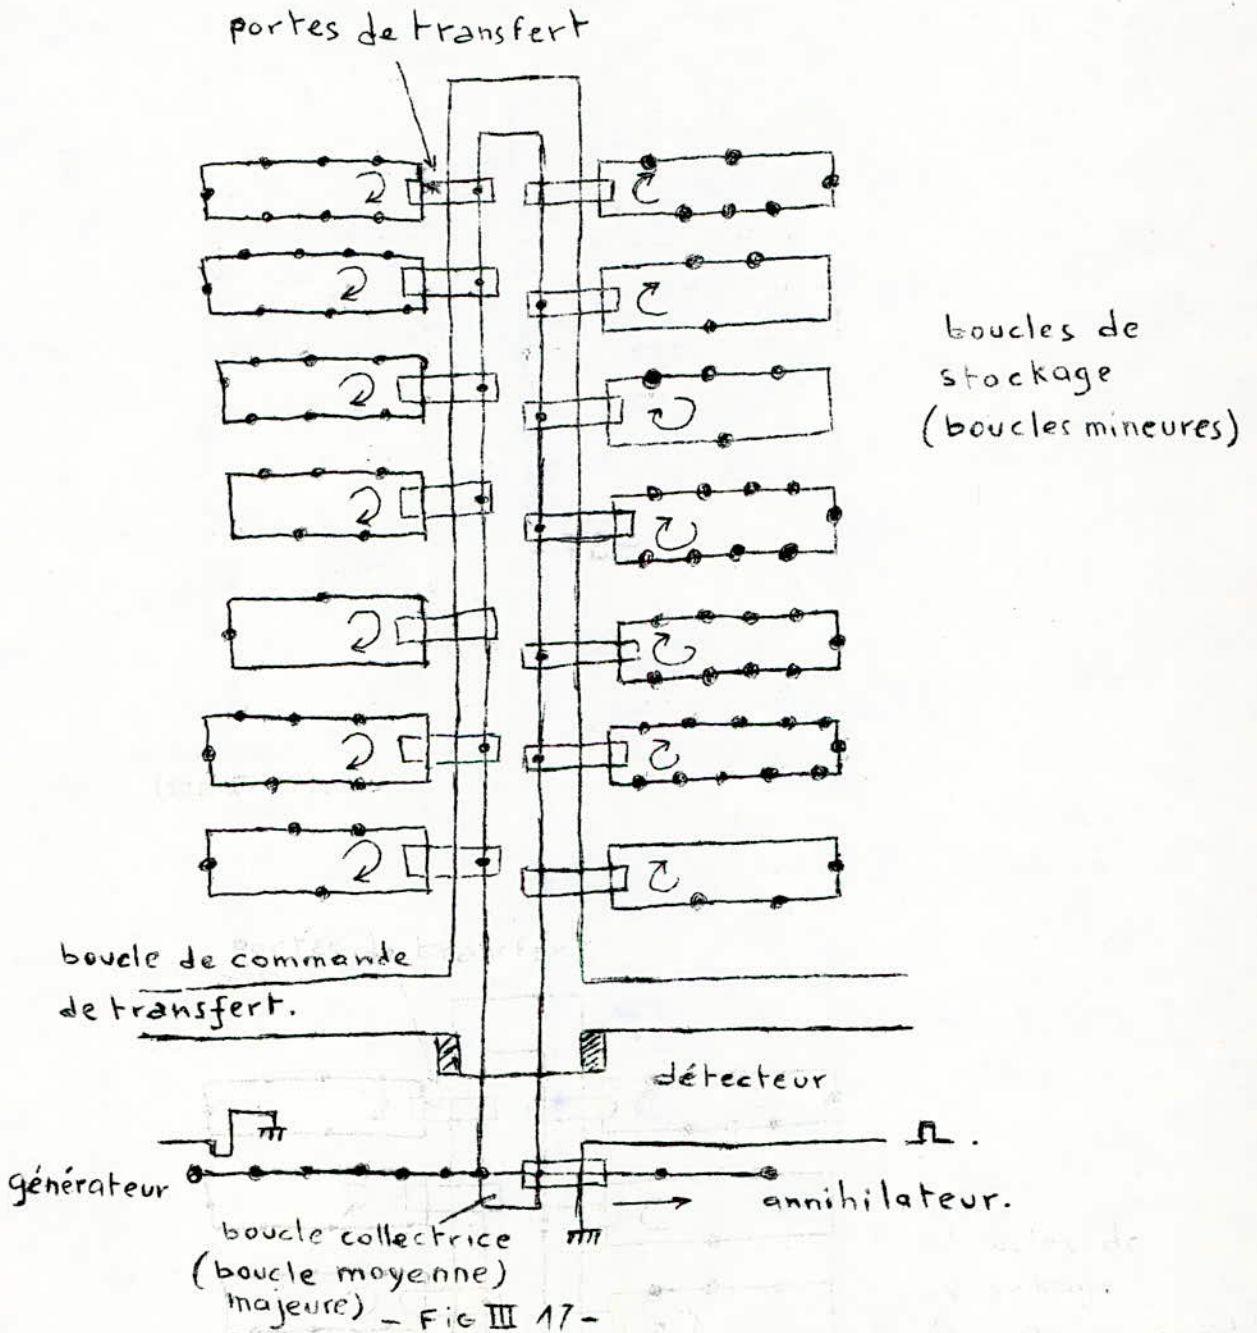 portes de transfert
boucles de
stockage
(boucles mineures)
boucle de commande
de transfert.
détecteur
générateur
annihilateur.
boucle collectrice
(boucle moyenne)
majeure)
- FIG III 17 -